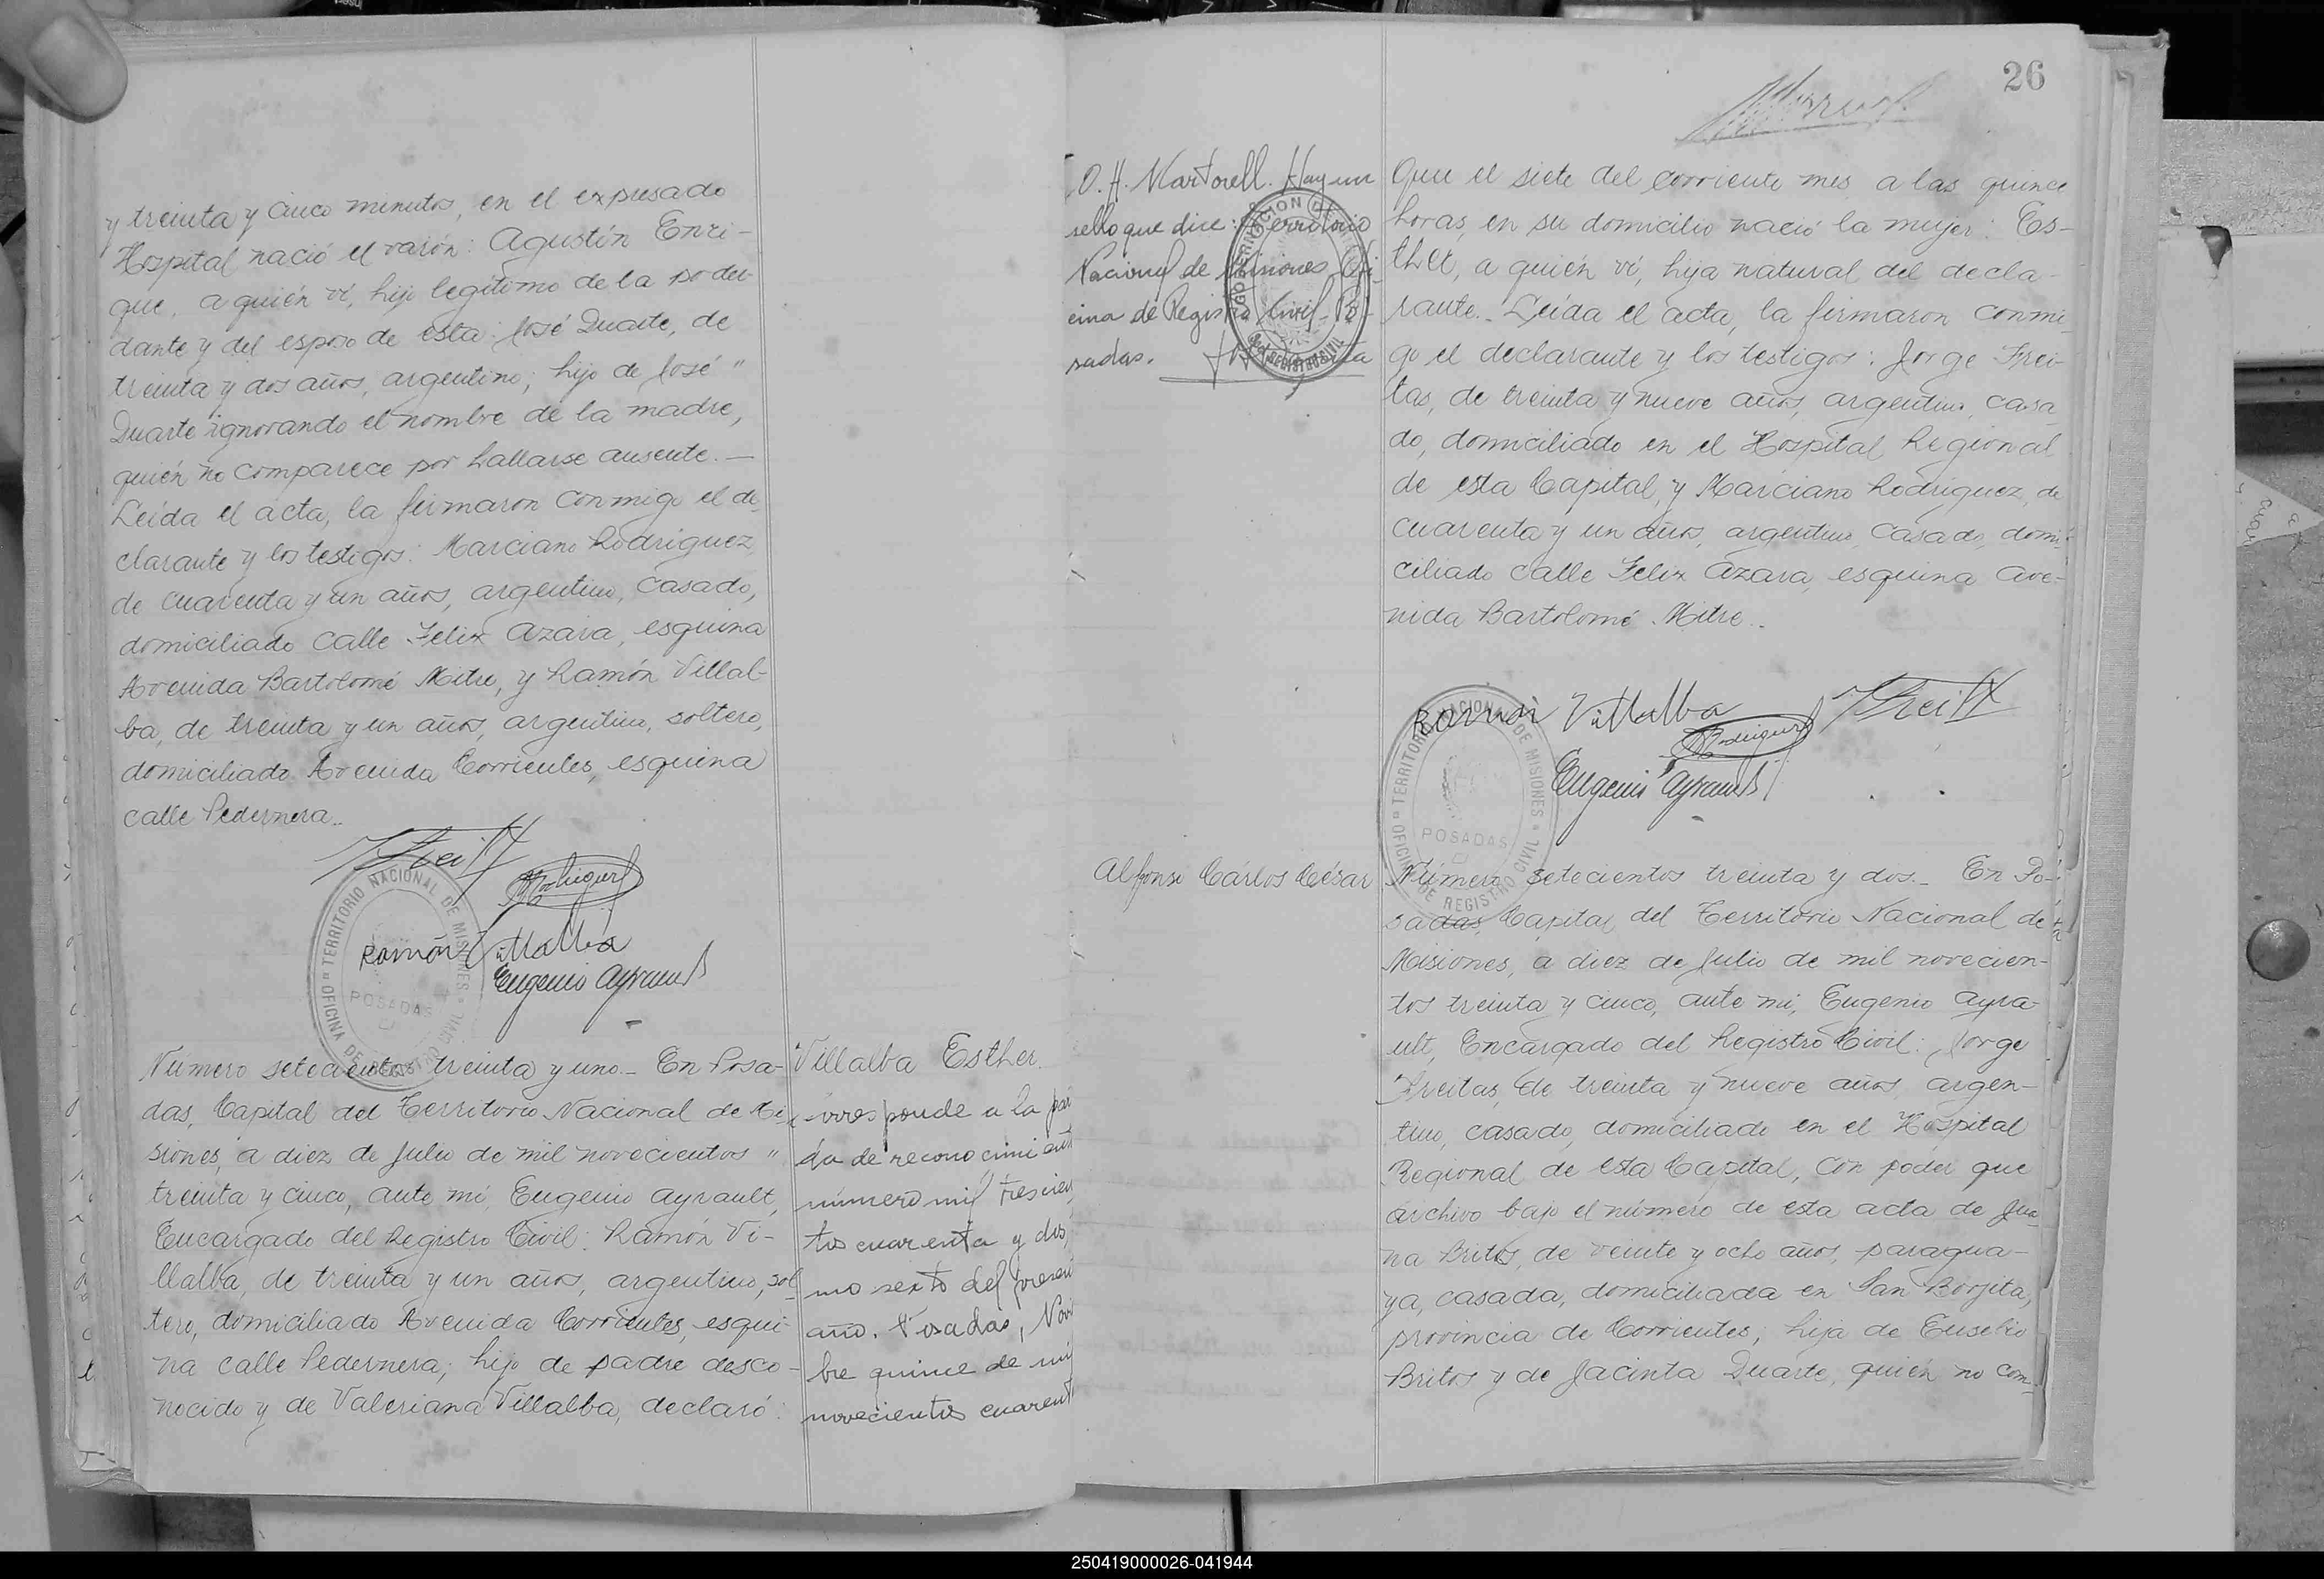 y treinta y cinco minutos, en el expresado
Hospital nació el varón: Agustín Enri-
que, a quién ví, hijo legítimo de la poder-
dante y del esposo de esta: José Duarte, de
treinta y dos años, argentino; hijo de José "
Duarte ignorando el nombre de la madre,
quién no comparece por hallarse ausente.—
Leída el acta, la firmaron conmigo el de-
clarante y los testigos: Marciano Rodriguez,
de cuarenta y un años, argentino, casado,
domiciliado calle Felix Azara, esquina
Avenida Bartolomé Mitre, y Ramón Villal-
ba, de treinta y un años, argentino, soltero,
domiciliado Avenida Corrientes, esquina
calle Pedernera..
JFreitas
MRodriguez
Ramón Villalba
Eugenio Ayrault
OFICINA DE REGISTRO CIVIL = TERRITORIO NACIONAL DE MISIONES =
POSADAS
Número setecientos treinta y uno.- En Posa-
das, Capital del Territorio Nacional de Mi-
siones, a diez de Julio de mil novecientos "
treinta y cinco, ante mí, Eugenio Ayrault,
Encargado del Registro Civil: Ramón Vi-
llalba, de treinta y un años, argentino, sol-
tero, domiciliado Avenida Corrientes, esqui-
na calle Pedernera; hijo de padre desco-
nocido y de Valeriana Villalba, declaró:
Villalba Esther.
rresponde a la par
da de reconocimient
número mil trescien
tos cuarenta y dos,
mo sexto del presen
año. Posadas, Novi
bre quince de mil
novecientos cuarent
26
O. H. Martorell. Hay un
sello que dice: Territorio
Nacional de Misiones Ofi-
cina de Registro Civil- Po-
sadas.
GOBERNACION DE
REGISTRO CIVIL
Que el siete del corriente mes a las quince
horas, en su domicilio nació la mujer: Es-
ther, a quién ví, hija natural del decla-
rante.- Leída el acta, la firmaron conmi-
go el declarante y los testigos: Jorge Frei-
tas, de treinta y nueve años, argentino, casa-
do, domiciliado en el Hospital Regional
de esta Capital, y Marciano Rodriguez, de
cuarenta y un años, argentino, casado, domi-
ciliado calle Felix Azara, esquina Ave-
nida Bartolomé Mitre..
Ramón Villalba
JFreitas
MRodriguez
Eugenio Ayrault
OFICINA DE REGISTRO CIVIL = TERRITORIO NACIONAL DE MISIONES =
POSADAS
Alfonso Cárlos César
Número setecientos treinta y dos.- En Po-
sadas, Capital del Territorio Nacional de
Misiones, a diez de Julio de mil novecien-
tos treinta y cinco, ante mi, Eugenio Ayra-
ult, Encargado del Registro Civil: Jorge
Freitas, de treinta y nueve años, argen-
tino, casado, domiciliado en el Hospital
Regional de esta Capital, con poder que
archivo bajo el número de esta acta de Jua-
na Britos, de veinte y ocho años, paragua-
ya, casada, domiciliada en San Borjita,
provincia de Corrientes; hija de Eusebio
Britos y de Jacinta Duarte, quién no com-
250419000026-041944